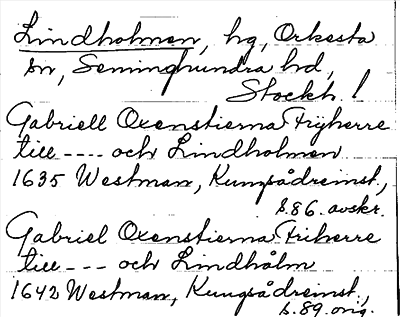 Lindholmen, hg, Orkesta
sn, Seminghundra hd,
Stockh. l
Gabriell Oxenstierna Frijherre
till ---- och Lindholmen
1635 Westman, Kungsådreinst.,
s.86. avskr.
Gabriel Oxenstierna Friherre
till --- och Lindhålm
1642 Westman, Kungsådreinst.,
s.89. orig.